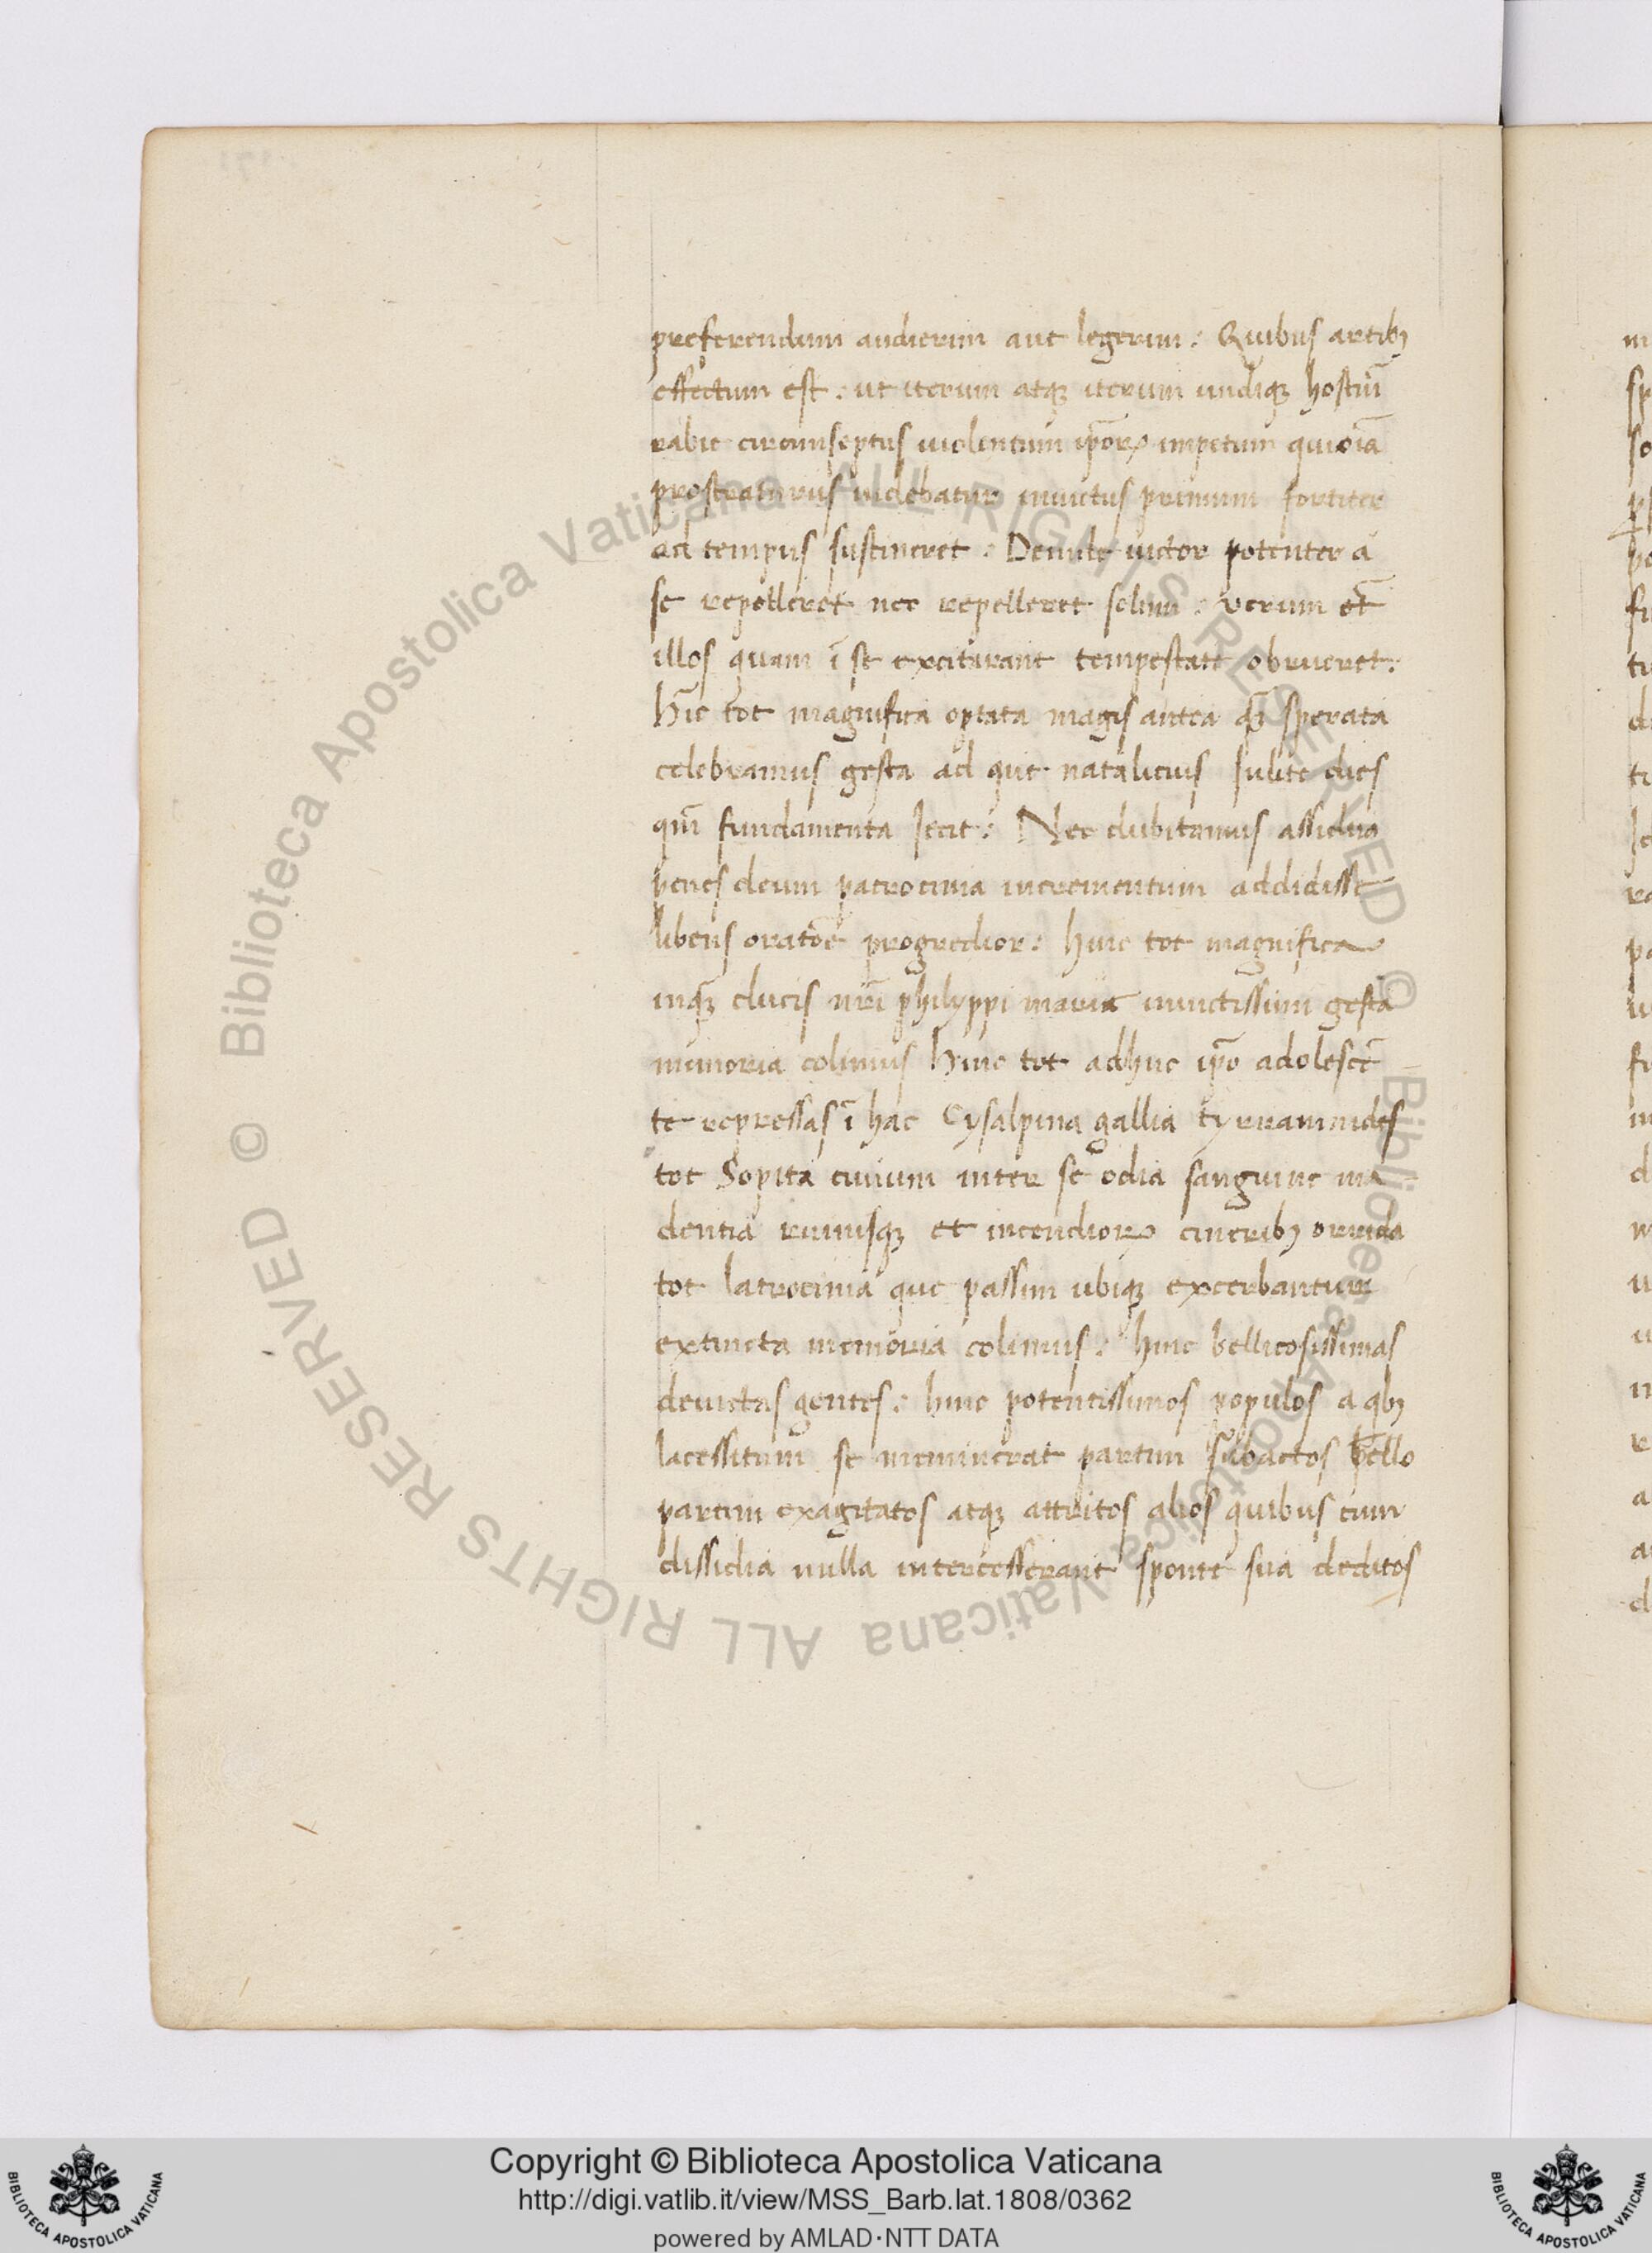 preferendum audierim aut legerim: Quibus artibꝫ
effectum est: ut iterum atqꝫ iterum undiqꝫ hostiū
rabie circumseptus uiolentum ip̄oꝝ impetum qui oīa
prostraturus uidebatur inuictus primum fortiter
ad tempus sustineret: Deinde uictor potenter a
se repelleret nec repelleret solum: uerum et̄
illos quam ī se excitarant tempestate obrueret:
hīc tot magnifica optata magis antea qꝫ̄ sperata
celebramus gesta ad que natalicius Iulite dies
qm̄ fundamenta Iecit: Nec dubitamus assidua
penes deum patrocinia incrementum addidisse
libens oratōē progredior: hinc tot magnifica
inqꝫ̄ ducis nr̄i philyppi maria inuictissimi gesta
memoria colimus hinc tot adhuc ip̄o adolescē
te repressas ī hac Cysalpina gallia tyrramnides
tot Sopita ciuium inter se odia sanguine ma=
dentia ruinisqꝫ et incendioꝝ cineribꝫ orrida
tot latrocinia que passim ubiqꝫ excerbantur
extincta memoria colimus: hinc bellicosissimas
deuictas gentes: hinc potentissimos populos a qbꝫ
lacessitum se meminerat partim subactos bello
partim exagitatos atqꝫ attritos alios quibus cum
dissidia nulla intercesserant sponte sua deditos
© Biblioteca Apostolica Vaticana ALL RIGHTS RESERVED © Biblioteca Apostolica Vaticana ALL RIGHTS RESERVED
Copyright © Biblioteca Apostolica Vaticana
http://digi.vatlib.it/view/MSS_Barb.lat.1808/0362
powered by AMLAD·NTT DATA
BIBLIOTECA APOSTOLICA VATICANA
BIBLIOTECA APOSTOLICA VATICANA